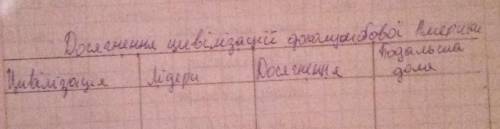 Досягнення цивілізацій доколумбової Америки
Цивілізація Лідери Досягнення Подальша доля